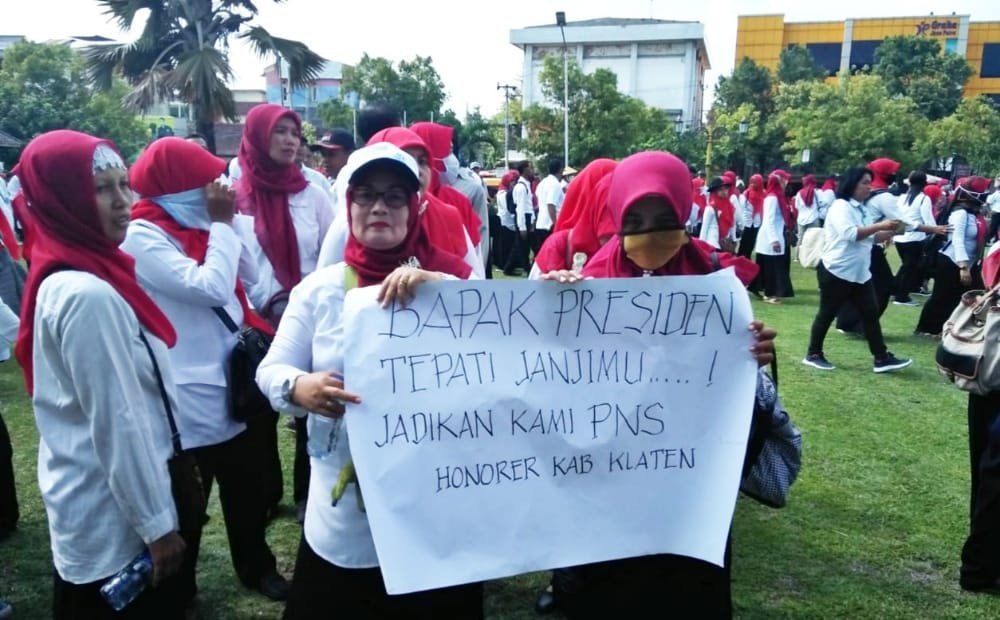 Graha
Jasa Putra
BAPAK PRESIDEN
TEPATI JANJIMU..... !
JADIKAN KAMI PNS
HONORER KAB KLATEN